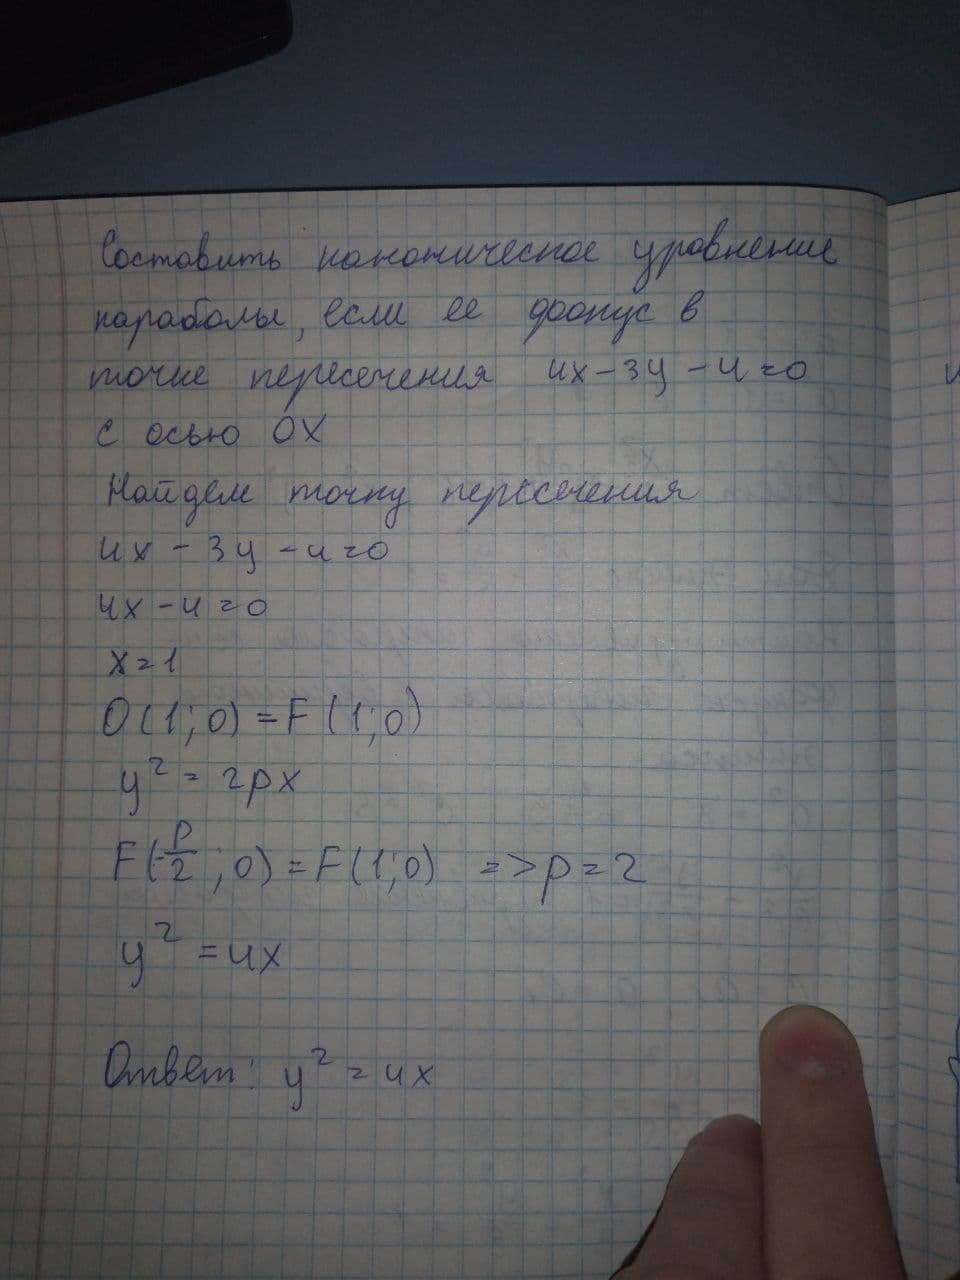 Составить каноническое уровнение
параболы, если ее фокус в
точке пересечения 4x-3y-4=0
с осью OX
Найдем точку пересечения
4x-3y-4=0
4x-4=0
x=1
O(1;0)=F(1;0)
y²=2px
F(p/2;0)=F(1;0) =>p=2
y²=4x
Ответ: y²=4x